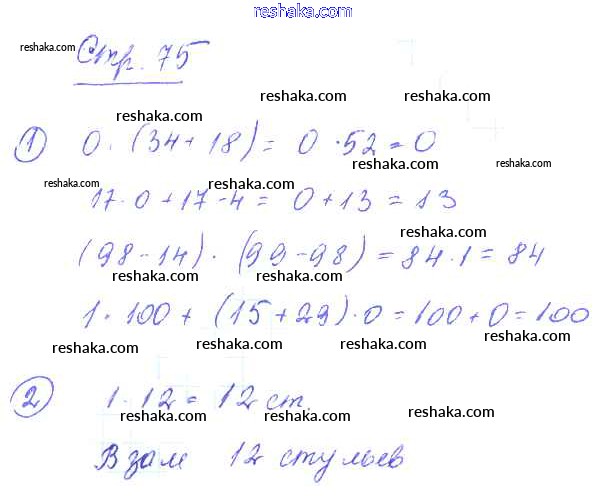 reshaka.com
Стр. 75
reshaka.com reshaka.com reshaka.com
reshaka.com reshaka.com
reshaka.com
① 0 · (34 + 18) = 0 · 52 = 0
reshaka.com reshaka.com
reshaka.com reshaka.com
17 · 0 + 17 - 4 = 0 + 13 = 13
reshaka.com
(98 - 14) · (99 - 98) = 84 · 1 = 84
reshaka.com reshaka.com reshaka.com
1 · 100 + (15 + 29) · 0 = 100 + 0 = 100
reshaka.com reshaka.com reshaka.com
② 1 · 12 = 12 ст.
reshaka.com reshaka.com reshaka.com
В зале 12 стульев
reshaka.com reshaka.com